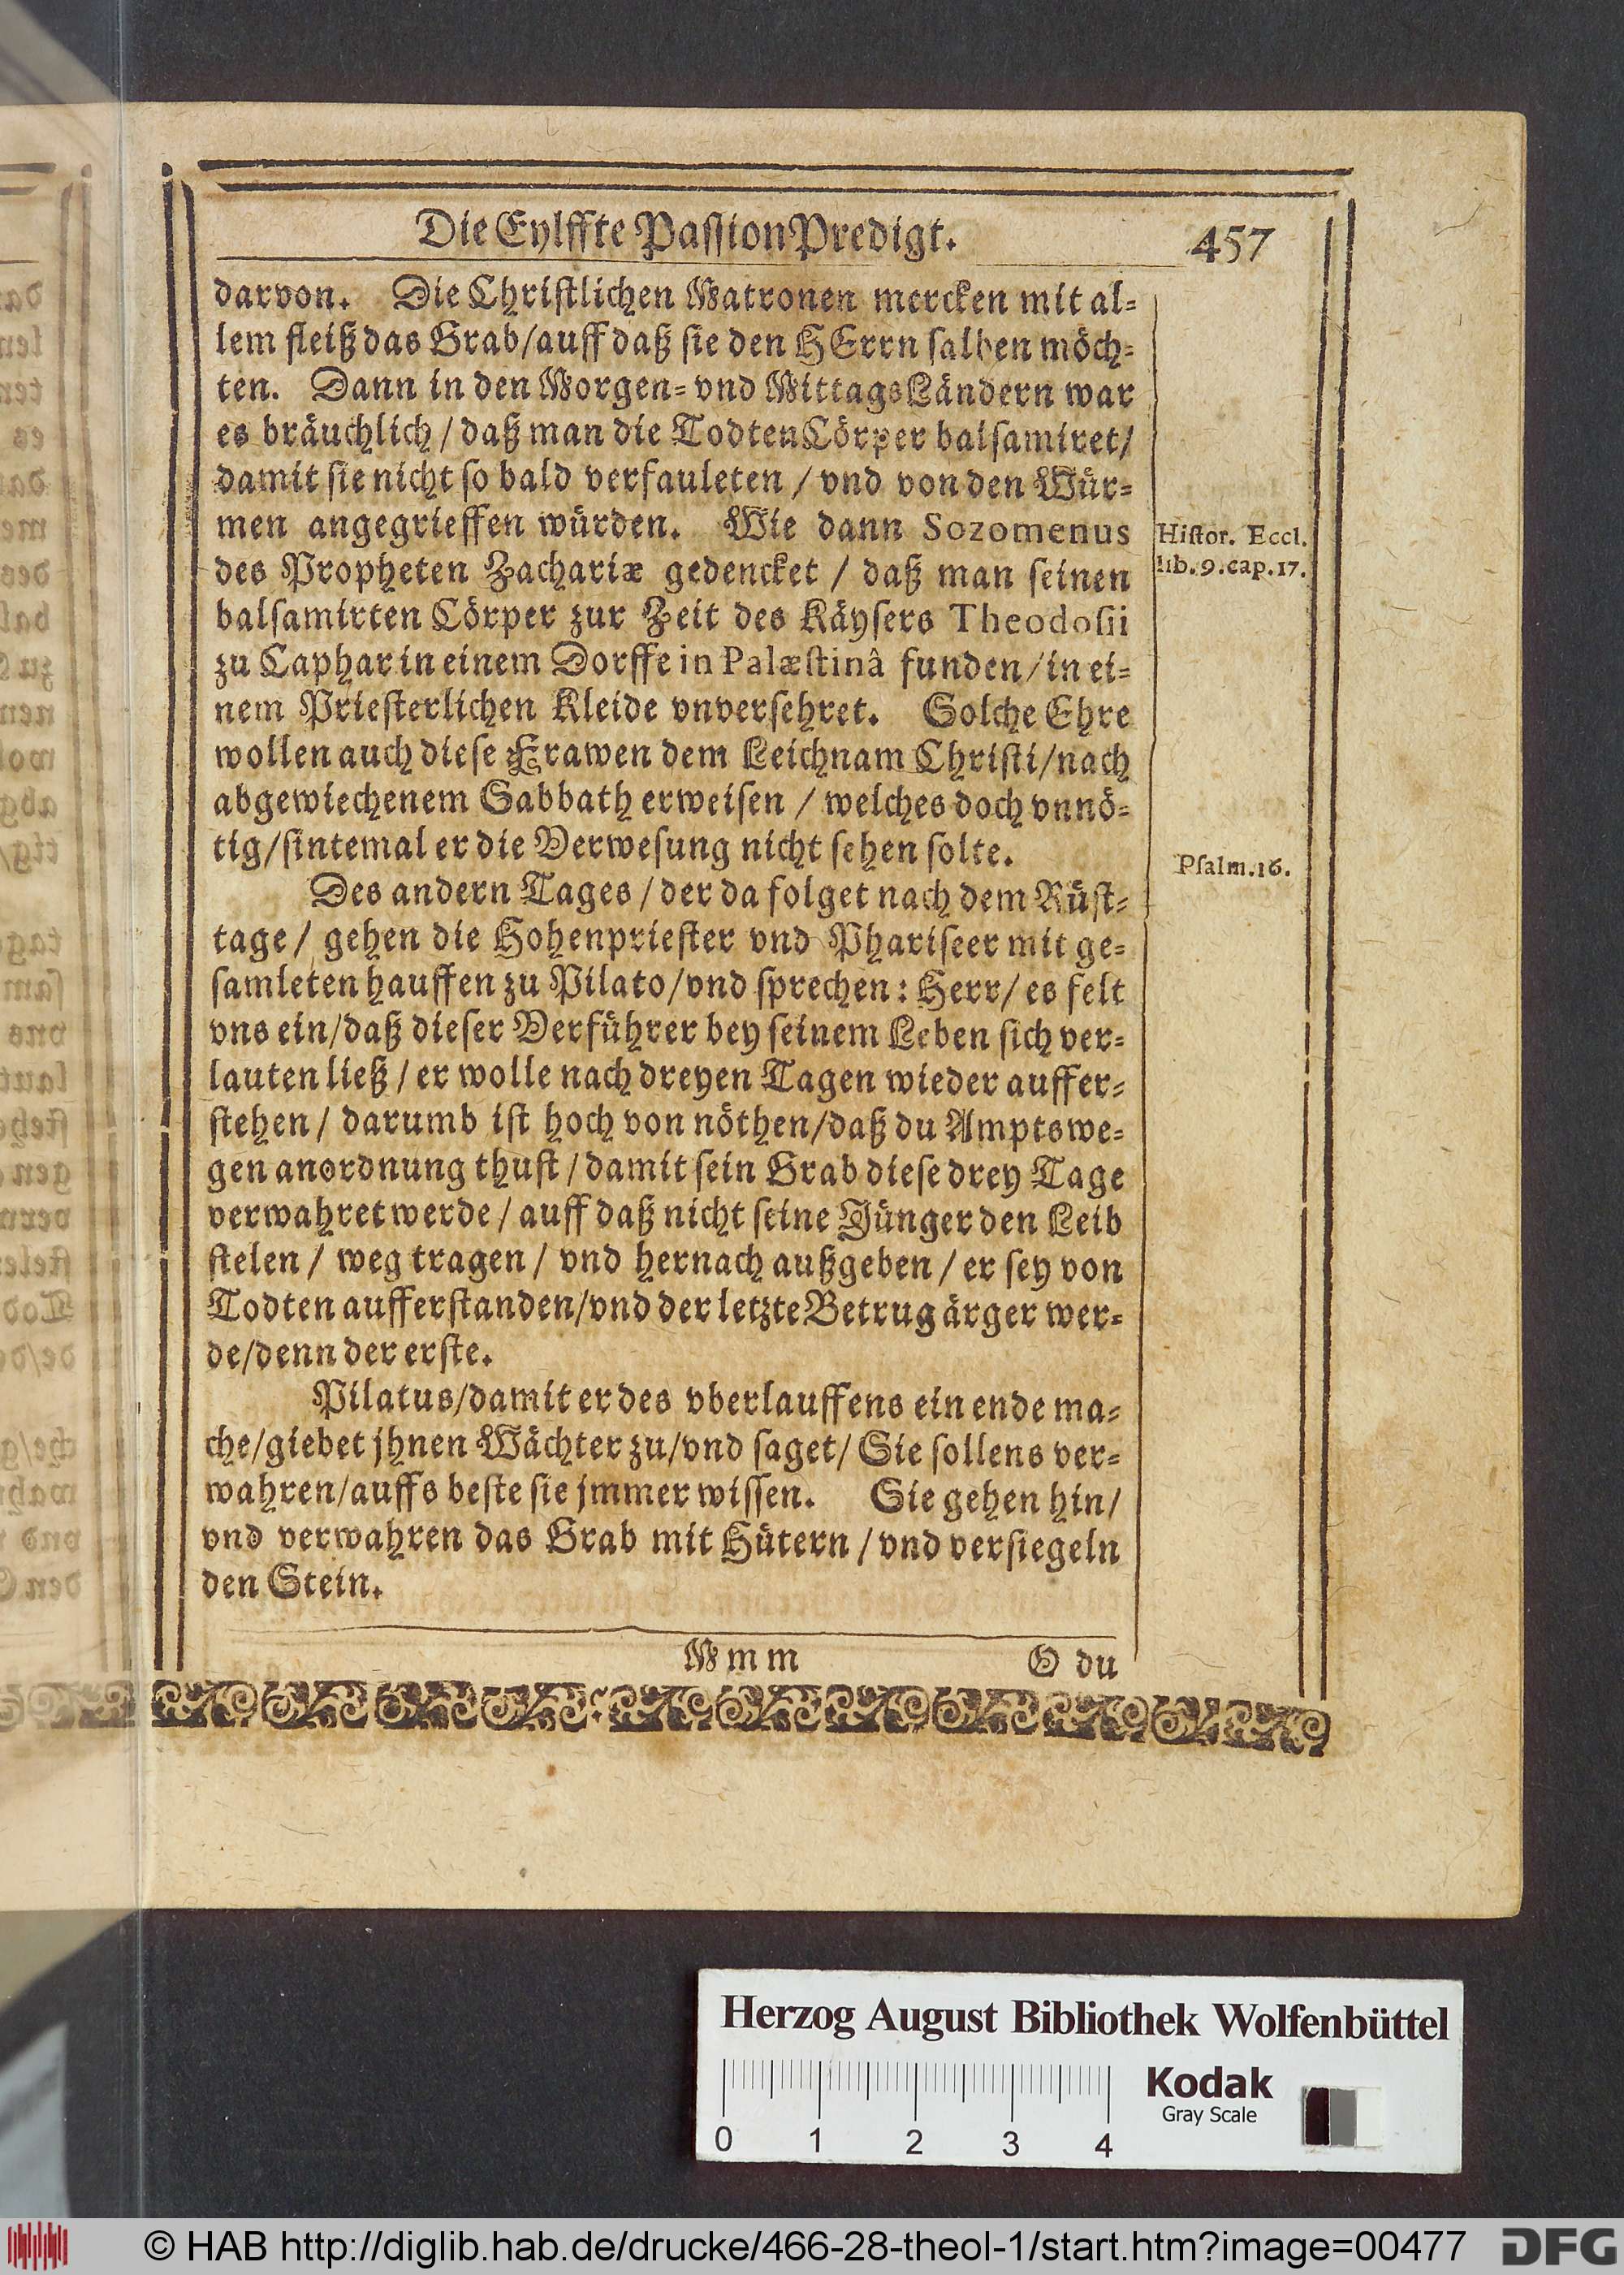 Die Eylffte Passion Predigt. 457
darvon. Die Christlichen Matronen mercken mit al-
lem fleiß das Grab/auff daß sie den HErrn salben möch-
ten. Dann in den Morgen- vnd MittagsLändern war
es bräuchlich / daß man die TodtenCörper balsamiret/
damit sie nicht so bald verfauleten / vnd von den Wür-
men angegrieffen würden. Wie dann Sozomenus
Histor. Eccl.
des Propheten Zachariæ gedencket / daß man seinen
lib. 9. cap. 17.
balsamirten Cörper zur Zeit des Käysers Theodosii
zu Caphar in einem Dorffe in Palæstinâ funden/in ei-
nem Priesterlichen Kleide vnversehret. Solche Ehre
wollen auch diese Frawen dem Leichnam Christi/nach
abgewiechenem Sabbath erweisen / welches doch vnnö-
tig/sintemal er die Verwesung nicht sehen solte.
Psalm. 16.
Des andern Tages / der da folget nach dem Rüst-
tage / gehen die Hohenpriester vnd Phariseer mit ge-
samleten hauffen zu Pilato/vnd sprechen: Herr/ es felt
vns ein/daß dieser Verführer bey seinem Leben sich ver-
lauten ließ / er wolle nach dreyen Tagen wieder auffer-
stehen / darumb ist hoch von nöthen/daß du Amptswe-
gen anordnung thust / damit sein Grab diese drey Tage
verwahret werde / auff daß nicht seine Jünger den Leib
stelen / weg tragen / vnd hernach außgeben / er sey von
Todten aufferstanden/vnd der letzte Betrug ärger wer-
de/denn der erste.
Pilatus/damit er des vberlauffens ein ende ma-
che/giebet jhnen Wächter zu/vnd saget/ Sie sollens ver-
wahren/auffs beste sie jmmer wissen. Sie gehen hin/
vnd verwahren das Grab mit Hütern / vnd versiegeln
den Stein.
M m m O du
Herzog August Bibliothek Wolfenbüttel
Kodak
Gray Scale
0 1 2 3 4
© HAB http://diglib.hab.de/drucke/466-28-theol-1/start.htm?image=00477 DFG